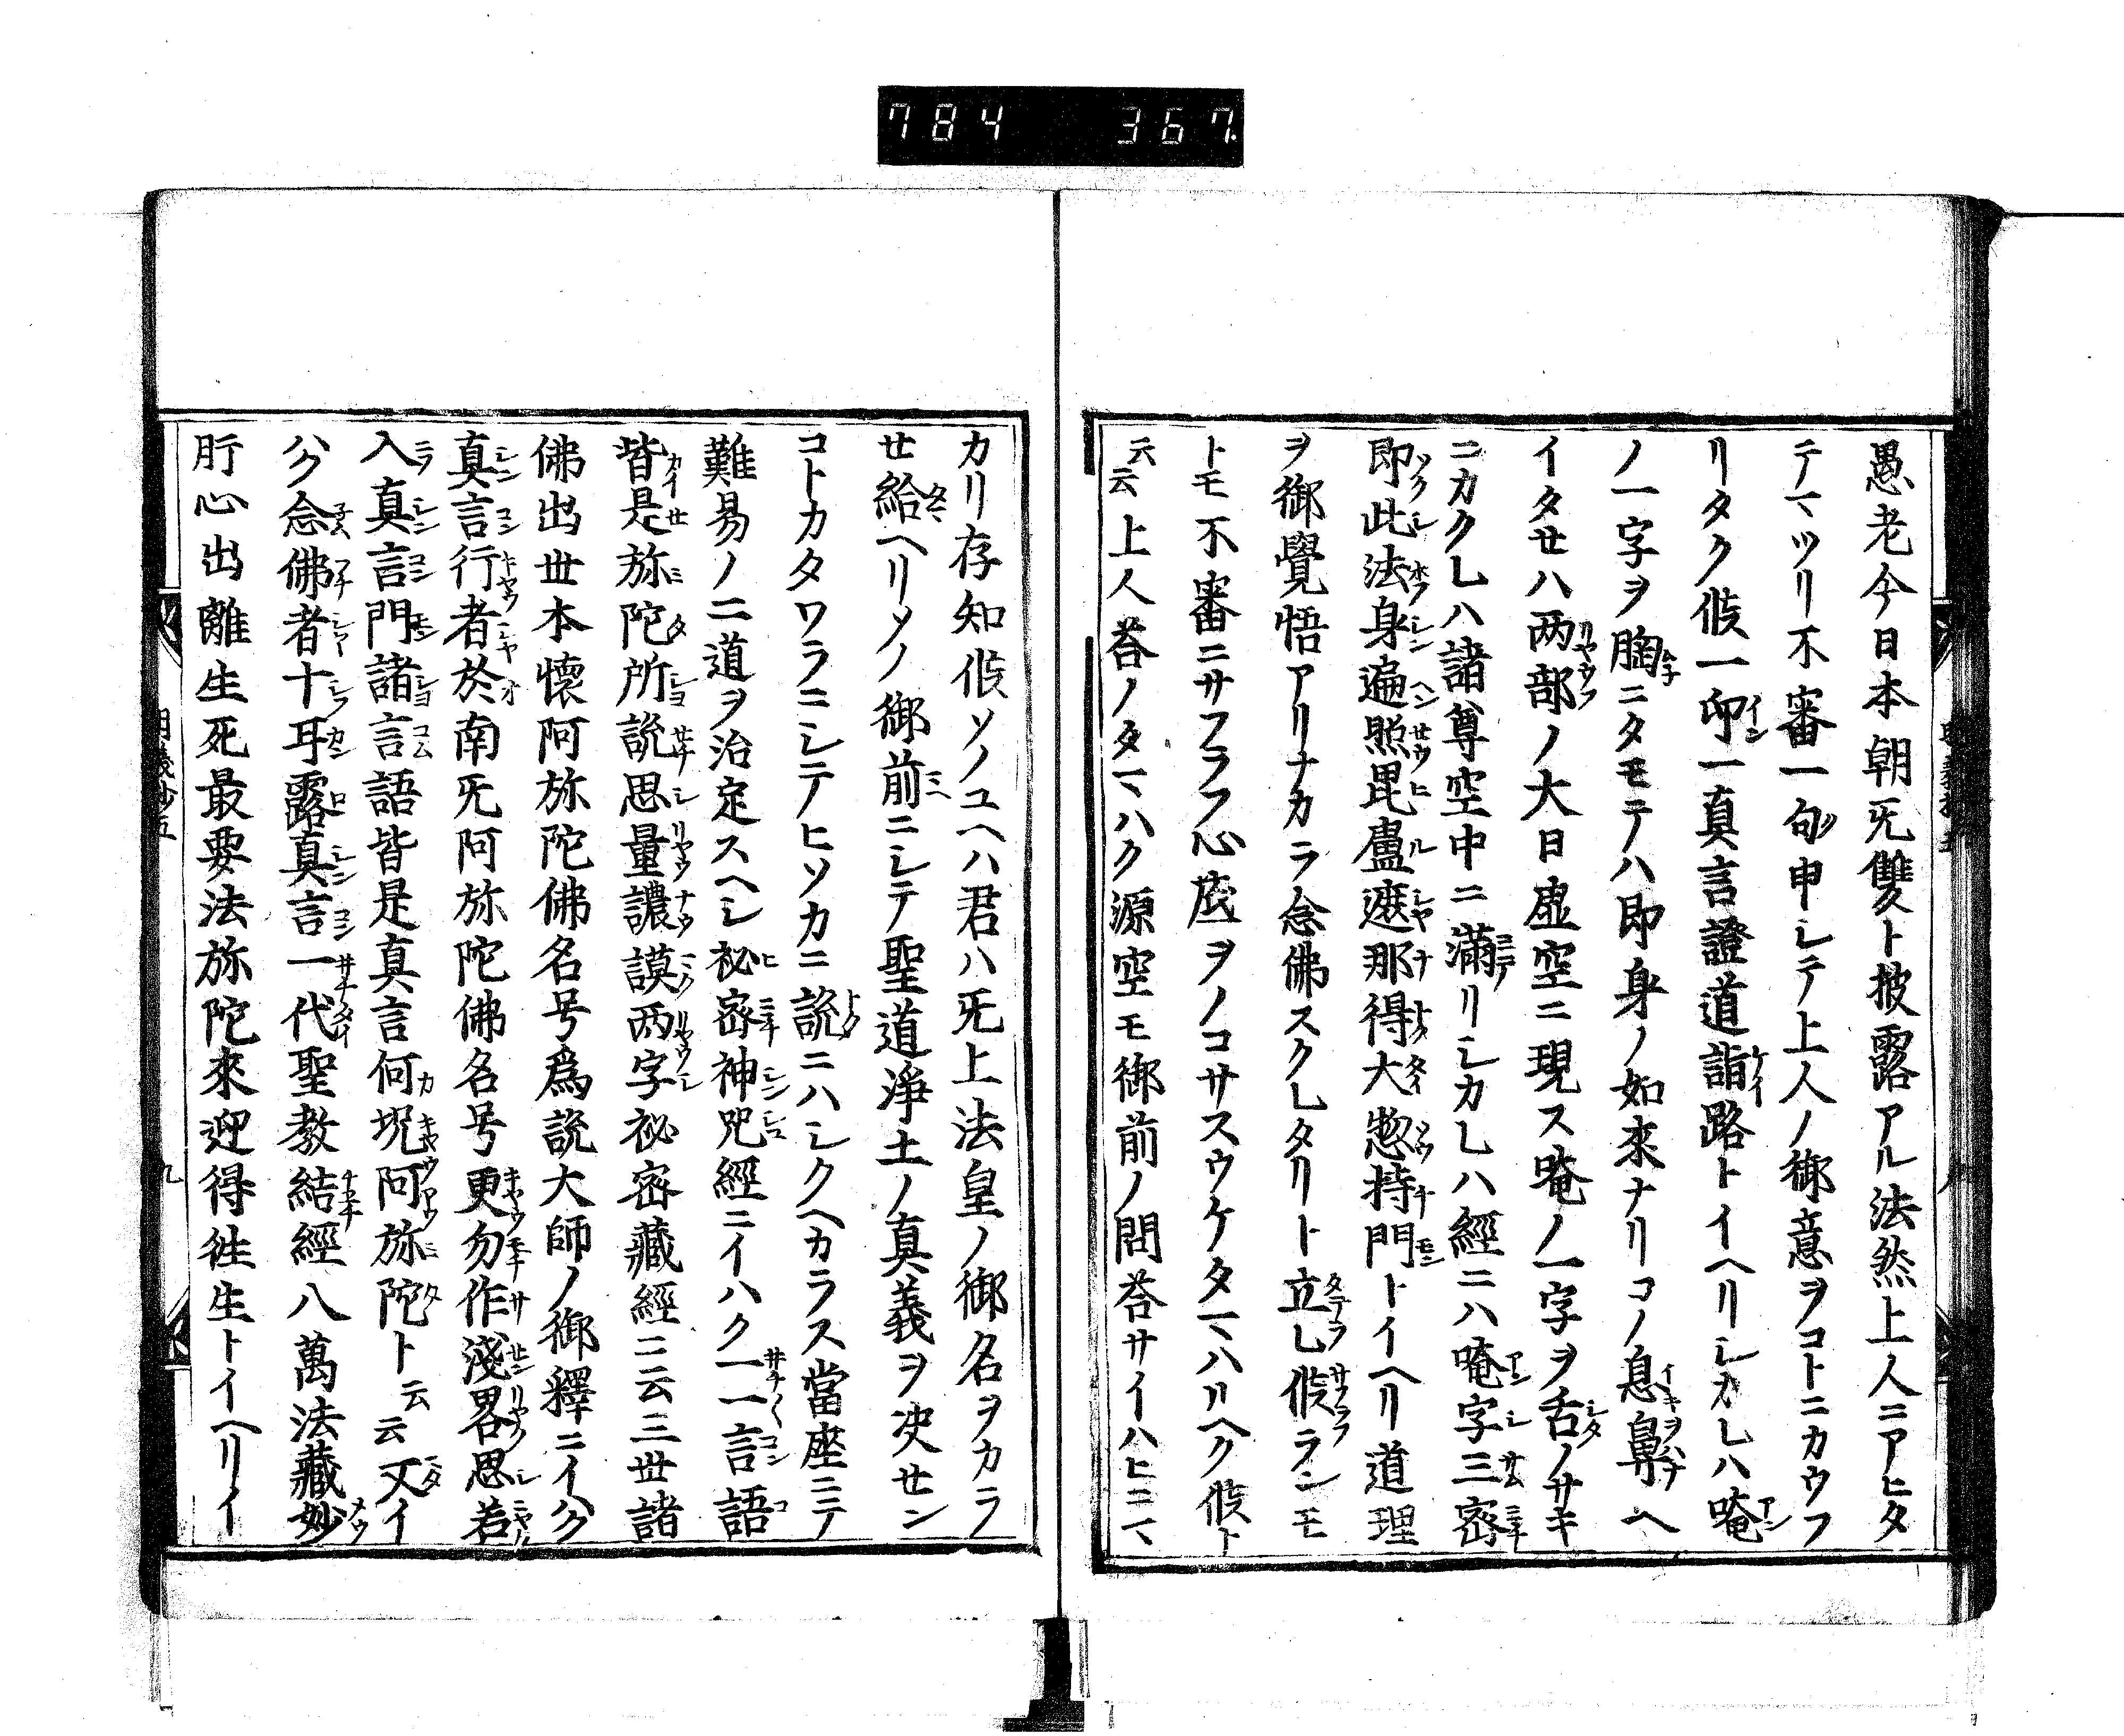 784 367
愚老今日本朝旡雙ト披露アル法然上人ニアヒタ
テマツリ不審一句申シテ上人ノ御意ヲコトニカウフ
リタク候一印一真言證道詣路トイヘリシカレハ唵
ノ一字ヲ胸ニタモテハ即身ノ如來ナリコノ息鼻ヘ
イタセハ两部ノ大日虚空ニ現ス唵ノ一字ヲ舌ノサキ
ニカクレハ諸尊空中ニ滿リシカレハ經ニハ唵字三宻
即此法身遍照毘盧遮那得大惣持門トイヘリ道理
ヲ御覺悟アリナカラ念佛スクレタリト立レ候ランモ
トモ不審ニサフラフ心底ヲノコサスウケタマハリヘク候ト
云云上人荅ノタマハク源空モ御前ノ問荅サイハヒニマ
カリ存知候ソノユヘハ君ハ旡上法皇ノ御名ヲカラ
せ給ヘリソノ御前ニシテ聖道淨土ノ真義ヲ决せン
コトカタワラニシテヒソカニ說ニハシクヘカラス當座ニテ
難易ノ二道ヲ治定スヘシ祕宻神咒經ニイハク一一言語
皆是弥陀所說思量譨謨两字祕宻藏經ニ云三世諸
佛出世本懷阿弥陀佛名号爲說大師ノ御釋ニイハク
真言行者於南旡阿弥陀佛名号更勿作淺畧思若
入真言門諸言語皆是真言何况阿弥陀ト云云又イ
ハク念佛者十耳露真言一代聖教結經八萬法藏妙
肝心出離生死最要法弥陀來迎得往生トイヘリイ